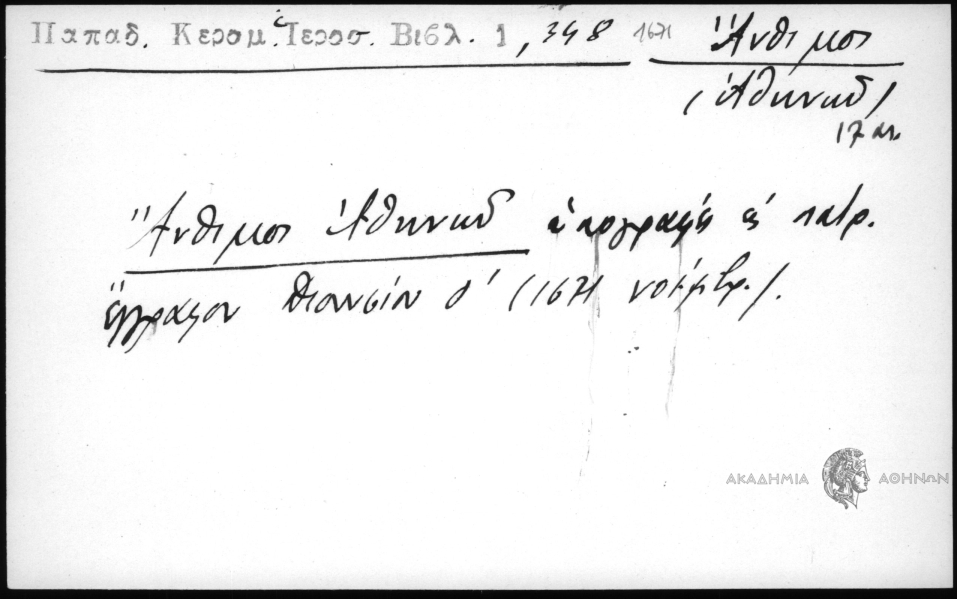 Παπαδ. Κεραμ. Ἱεροσ. Βιβλ. 1, 348 1671 Ἄνθιμος
(Ἀθηνῶν)
17 αι.
Ἄνθιμος Ἀθηνῶν ὑπογραφὴ εἰς πατρ.
ἔγγραφον Διονυσίου Δ' (1671 νοέμβρ.).
ΑΚΑΔΗΜΙΑ ΑΘΗΝΩΝ